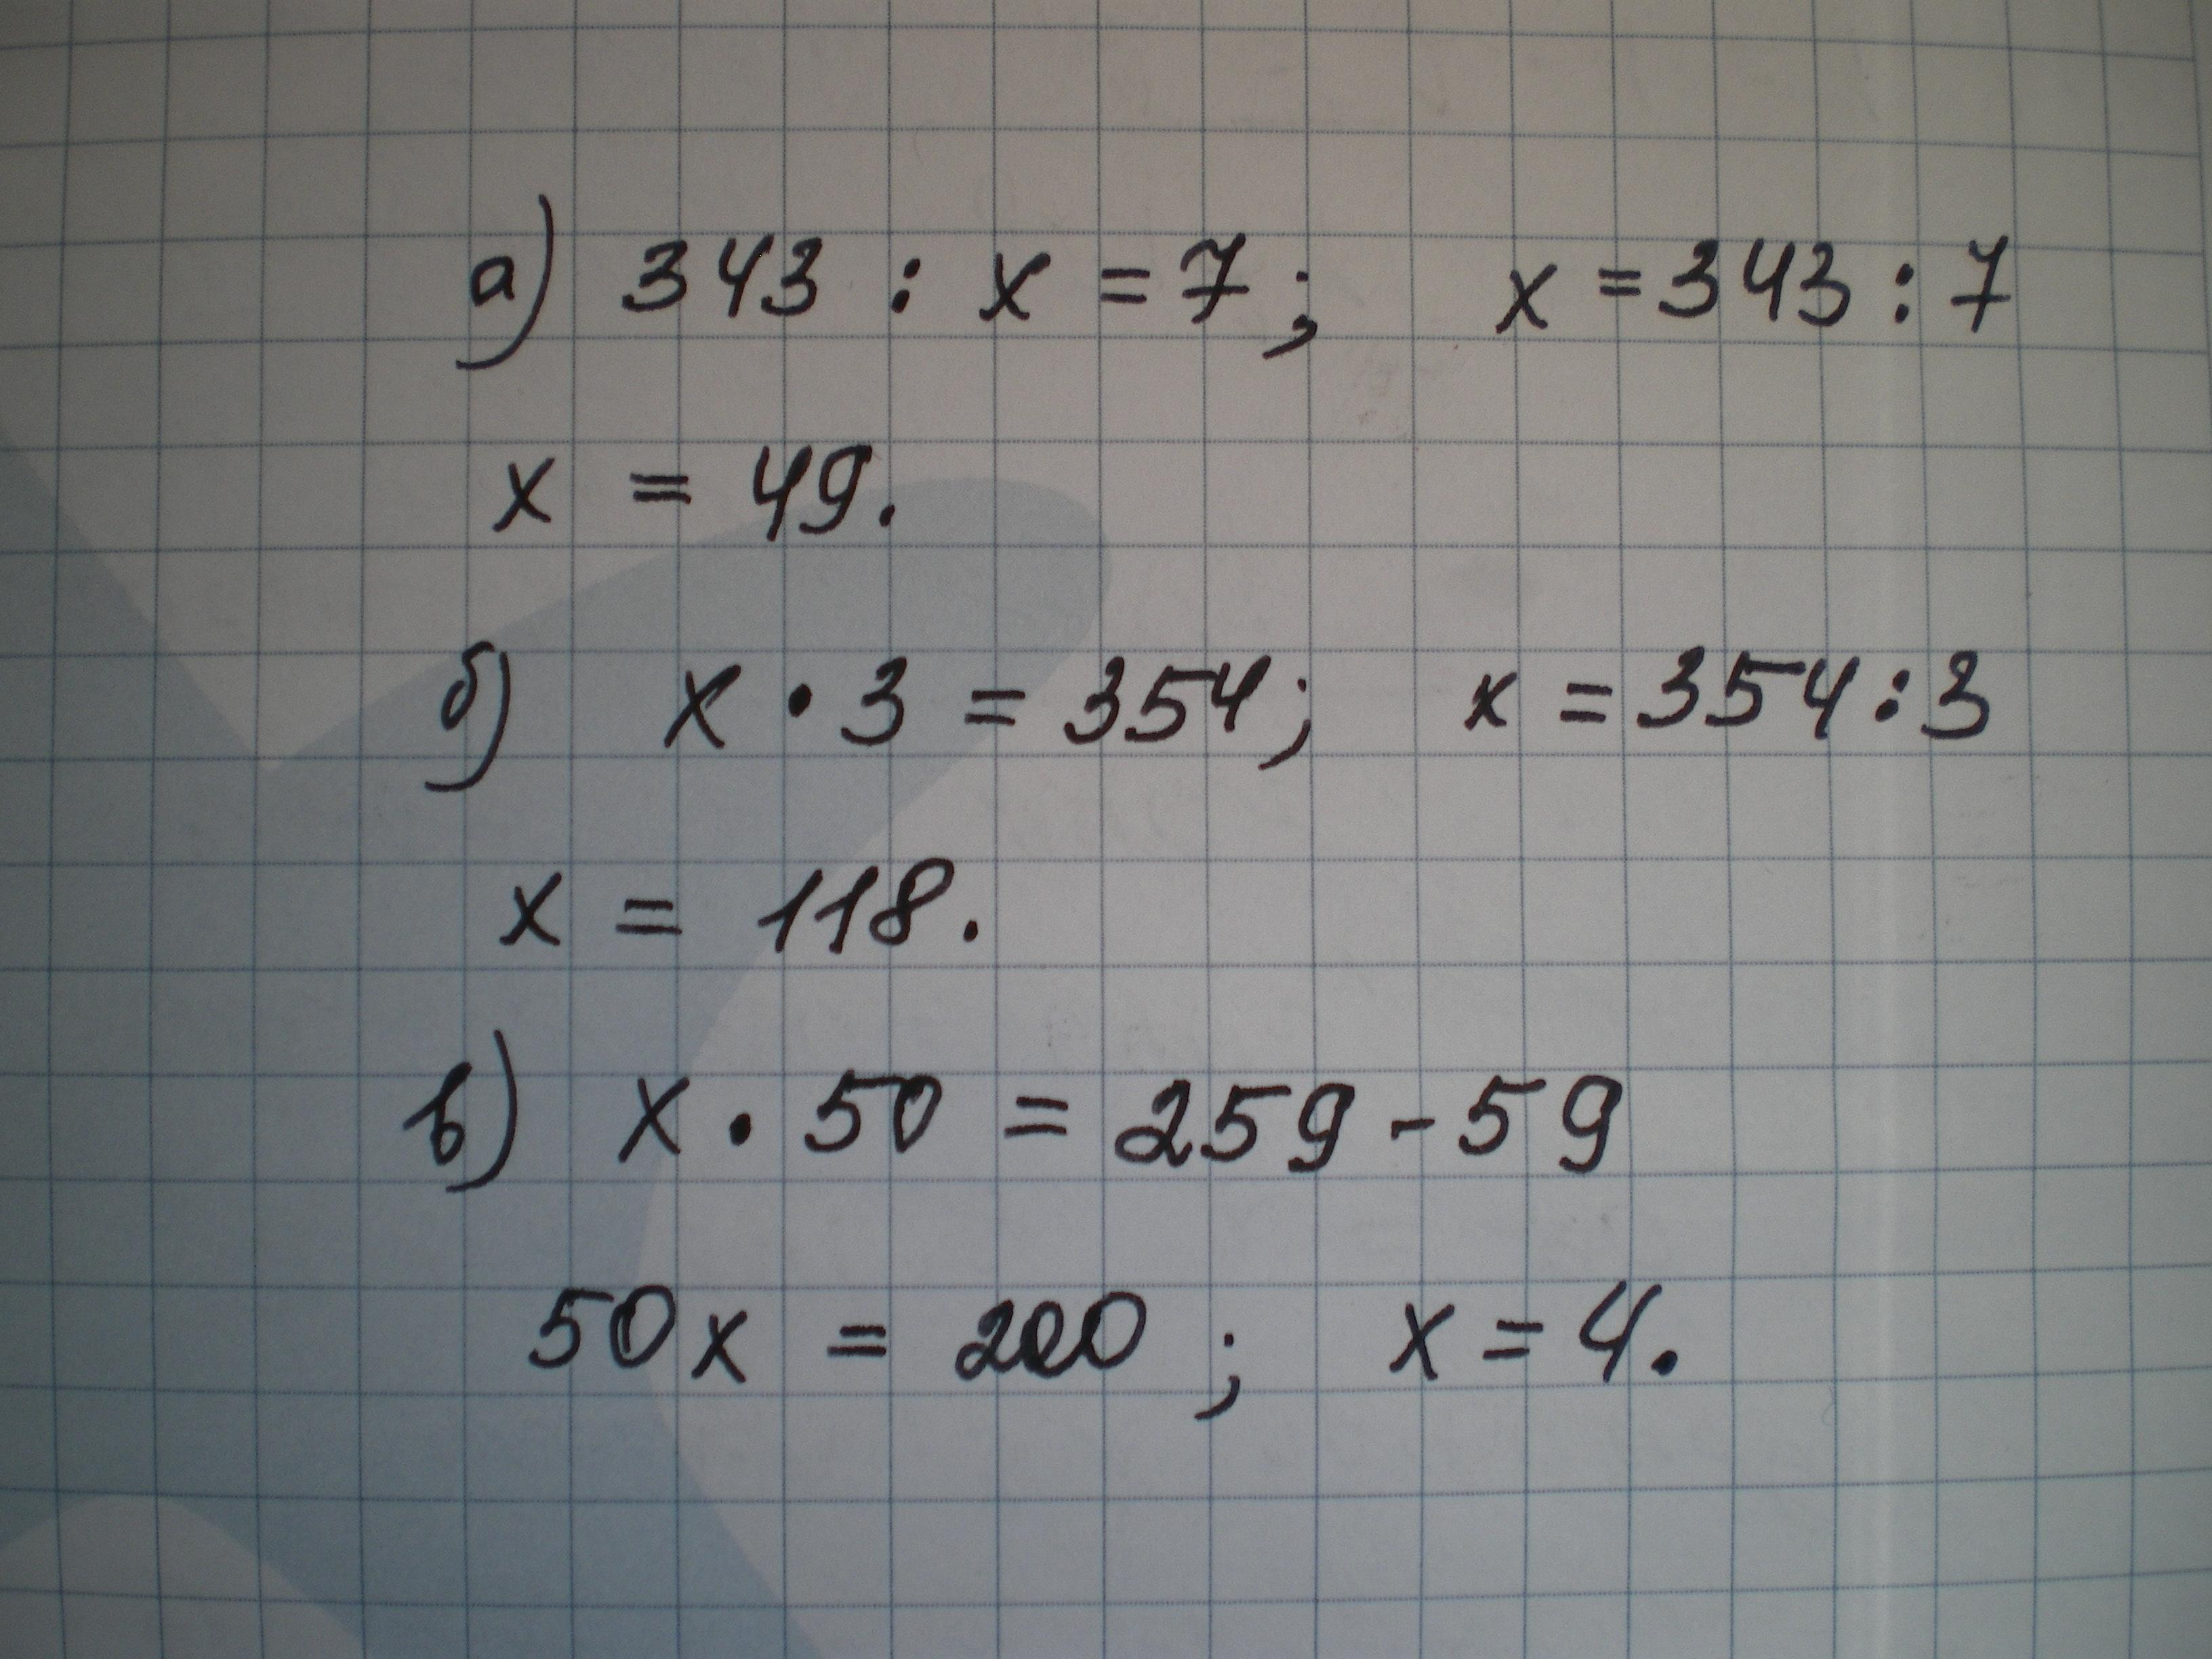 а) 343 : x = 7; x = 343 : 7
x = 49.
б) x · 3 = 354; x = 354 : 3
x = 118.
в) x · 50 = 259 - 59
50x = 200; x = 4.